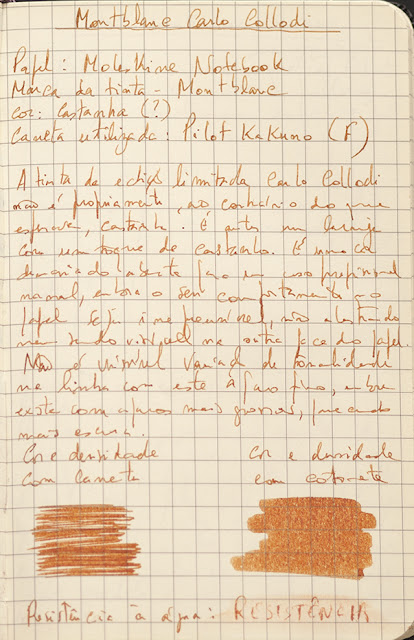 Montblanc Carlo Collodi
Papel: Moleskine Notebook
Marca da tinta - Montblanc
Cor: Castanha (?)
Caneta utilizada: Pilot Kakuno (F)
A tinta de edição limitada Carlo Collodi
não é propriamente, ao contrário do que
esperava, castanha. É antes um laranja
com um toque de castanho. É uma cor
demasiado aberta para um uso profissional
normal, embora o seu comportamento no
papel seja irrepreensível, não alastrando
nem sendo visível na outra face do papel.
Não é visível variação de tonalidade
na linha com este aparo fino, embora
exista com aparos mais grossos, ficando
mais escura.
Cor e densidade
com caneta
Cor e densidade
com cotonete
Resistência à água: RESISTÊNCIA